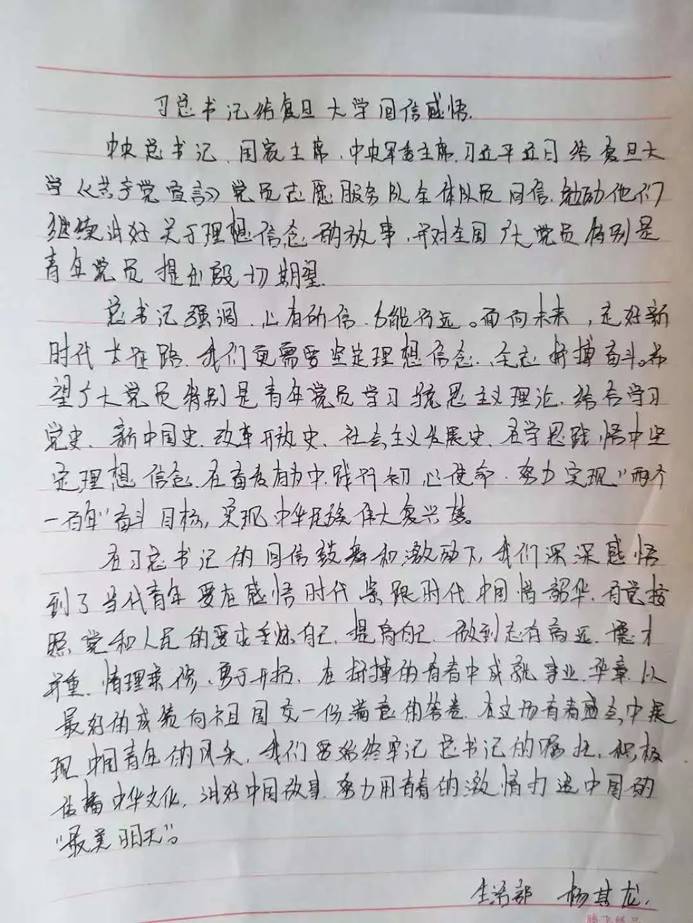 习总书记给复旦大学回信感悟.
中央总书记、国家主席、中央军委主席习近平近日给复旦大
学《共产党宣言》党员志愿服务队全体队员回信,勉励他们
继续讲好关于理想信念的故事,并对全国广大党员特别是
青年党员提出殷切期望.
总书记强调,心有所信,方能行远。面向未来,走好新
时代长征路,我们更需要坚定理想信念、矢志拼搏奋斗。希
望广大党员特别是青年党员学习马思主义理论,结合学习
党史、新中国史、改革开放史、社会主义发展史,在学思践悟中坚
定理想信念,在奋发有为中践行初心使命,努力实现"两个
一百年"奋斗目标,实现中华民族伟大复兴梦。
在习总书记的回信鼓舞和激励下,我们深深感悟
到了当代青年要在感悟时代紧跟时代中珍惜韶华,自觉按
照党和人民的要求锤炼自己,提高自己,做到志有高远、德才
并重、情理兼修、勇于开拓,在拼搏的青春中成就事业华章,以
最好的成绩向祖国交一份满意的答卷.在这场青春盛会中展
现中国青年的风采,我们要始终牢记总书记的嘱托,积极
传播中华文化,讲好中国故事,努力用青春的激情打造中国的
"最美明天"。
生活部 杨其龙.